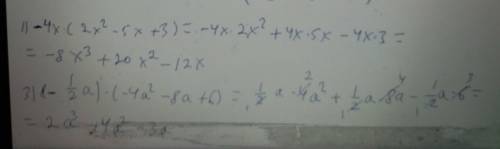 1) -4x·(2x² - 5x + 3) = -4x·2x² + 4x·5x - 4x·3 =
= -8x³ + 20x² - 12x
3) (-1/2a)·(-4a² - 8a + 6) = 1/2a·4a² + 1/2a·8a - 1/2a·6 =
= 2a³ + 4a² - 3a